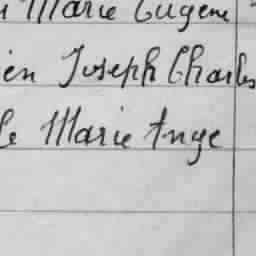 Marie Eugene
en Joseph Charles
le Marie Ange